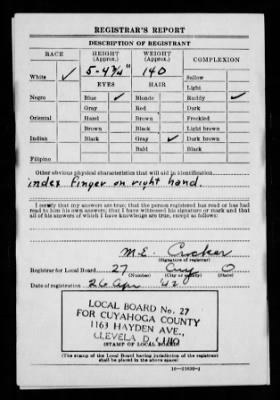 REGISTRAR'S REPORT
DESCRIPTION OF REGISTRANT
RACE HEIGHT (Approx.) WEIGHT (Approx.) COMPLEXION
White ✓ 5-4¾" 140 Sallow
EYES HAIR Light
Negro Blue ✓ Blonde Ruddy ✓
Gray Red Dark
Oriental Hazel Brown Freckled
Brown Black Light brown
Indian Black Gray ✓ Dark brown
Bald Black
Filipino
Other obvious physical characteristics that will aid in identification
index finger on right hand.
I certify that my answers are true; that the person registered has read or has had
read to him his own answers; that I have witnessed his signature or mark and that
all of his answers of which I have knowledge are true, except as follows:
M.E.
(Signature of registrar)
Registrar for Local Board 27 Cuy O
(Number) (City or county) (State)
Date of registration 26 Apr 42
LOCAL BOARD No. 27
FOR CUYAHOGA COUNTY
1163 HAYDEN AVE.,
CLEVELAND, OHIO
(STAMP OF LOCAL BOARD)
(The stamp of the Local Board having jurisdiction of the registrant
shall be placed in the above space)